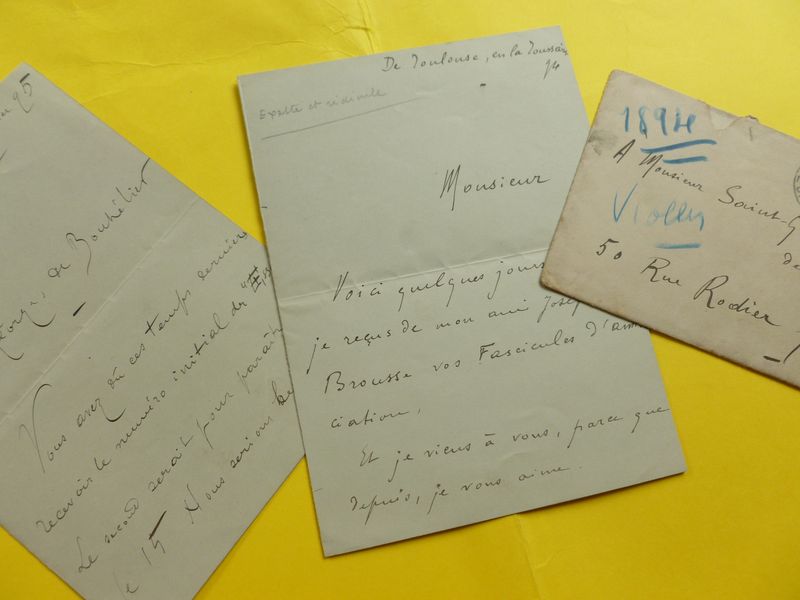 95
Georges de Bouhélier
Vous avez dû ces temps derniers
recevoir le numéro initial de
Le second serait pour paraître
le 15 Nous serions
De Toulouse, en la Toussaint
94
Exalté et
Monsieur
Voici quelques jours
je reçus de mon ami Josep
Brousse vos Fascicules d'ann
ciation,
Et je viens à vous, parce que
depuis, je vous aime..
1894
A Monsieur Saint-G
de
50 Rue Rodier